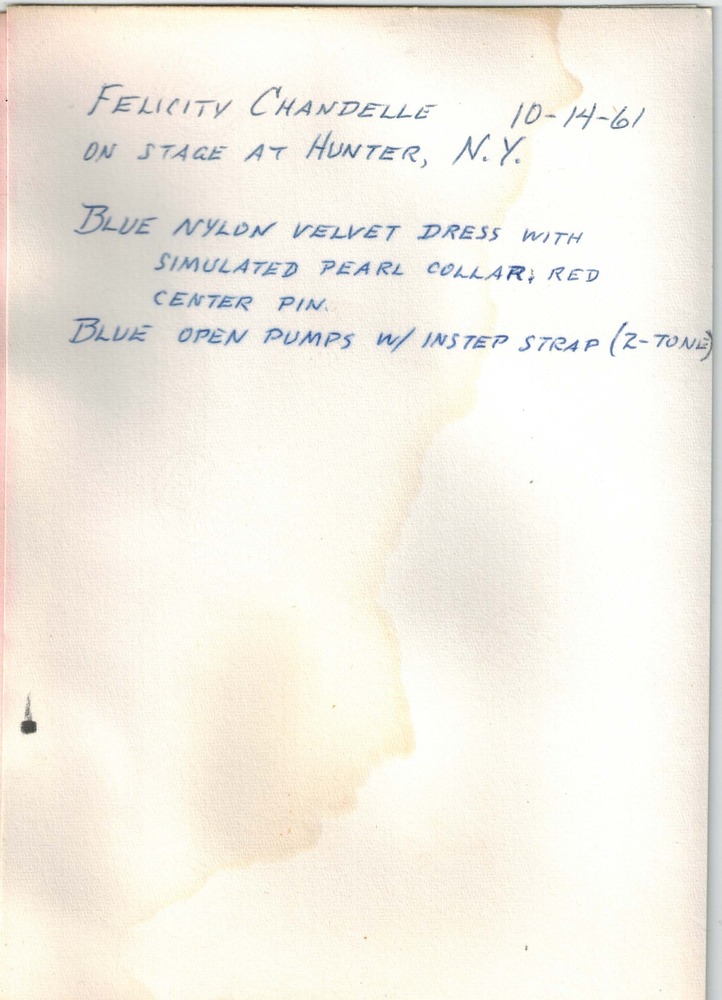 FELICITY CHANDELLE 10-14-61
ON STAGE AT HUNTER, N.Y.
BLUE NYLON VELVET DRESS WITH
SIMULATED PEARL COLLAR; RED
CENTER PIN.
BLUE OPEN PUMPS W/ INSTEP STRAP (2-TONE)